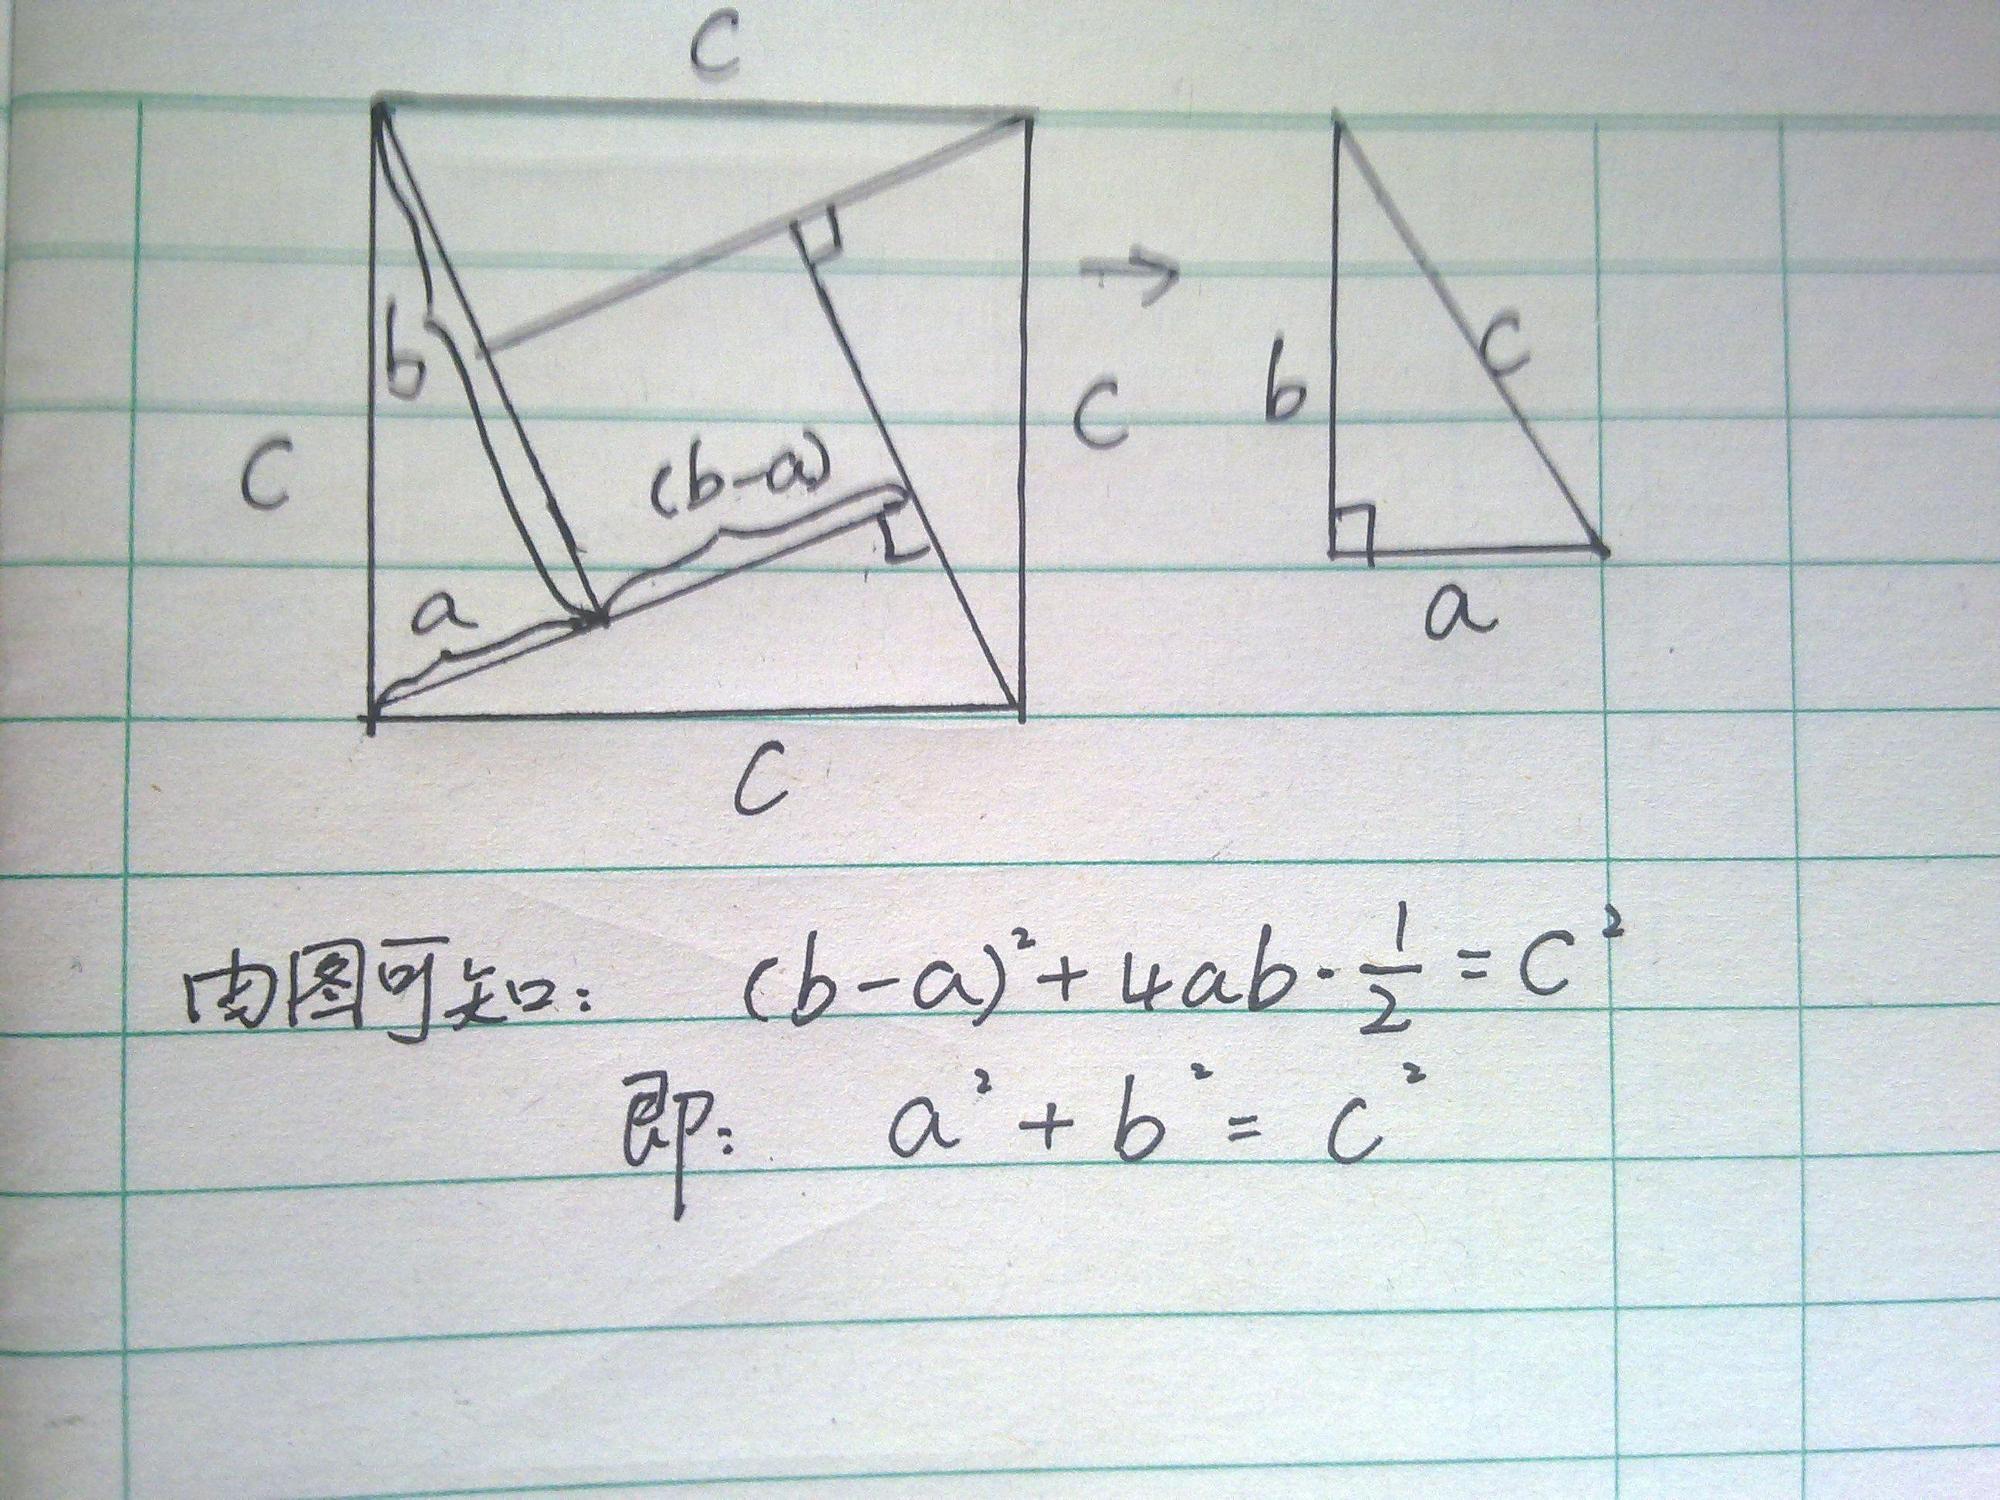 C
b
C
a
(b-a)
C
C
b
C
a
由图可知: (b-a)²+4ab·1/2=C²
即: a²+b²=c²